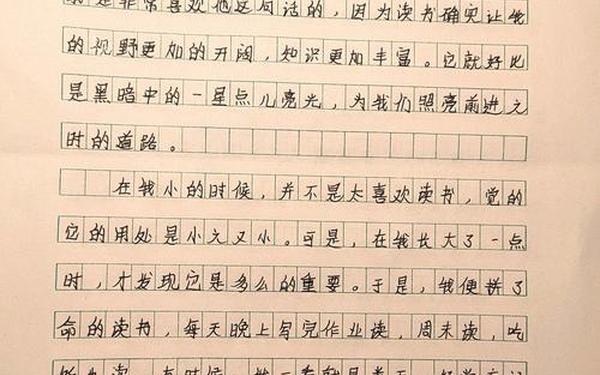 是非常喜欢他这句话的，因为读书确实让我
的视野更加的开阔，知识更加丰富。它就好比
是黑暗中的一星点儿亮光，为我们照亮前进之
时的道路。
在我小的时候，并不是太喜欢读书，觉的
它的用处是小之又小。可是，在我长大了一点
时，才发现它是多么的重要。于是，我便拼了
命的读书，每天晚上写完作业读，周末读，吃